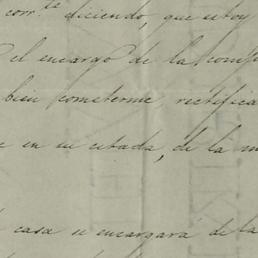 corr.te diciendo, que estoy
el encargo de la comp
bien cometerme, rectifica
en su citada, de la m
casa se encargará de la